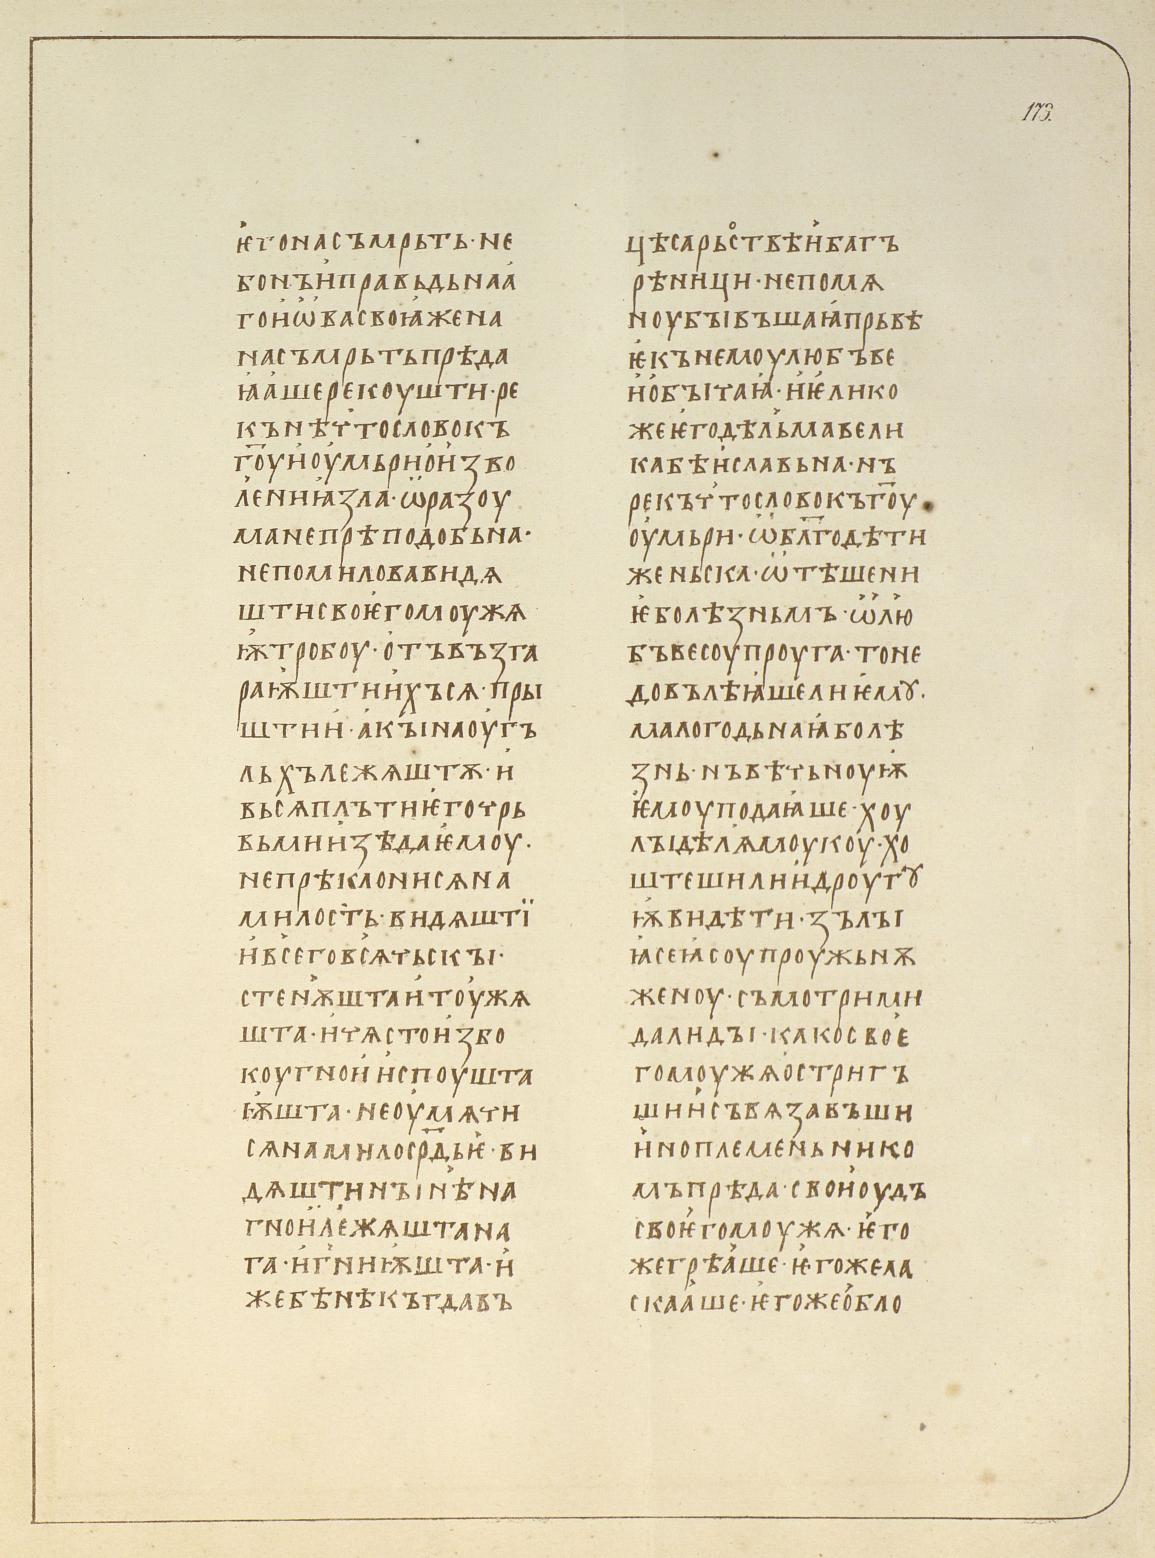 173.
ѥгонасъмрьть·не
бонъиправьдьнаа
гоиѡвасвоꙗжена
насъмрьтьпрѣда
ꙗашерекоушти·ре
кънѣчтословокъ
г҃оуиоумьриоизво
лениꙗзла·ѡразоу
манепрѣподобьна·
непомиловавидѧ
штисвоѥгомоужѧ
ѭтробоу·отъвъзга
раѭштиихъсѧ·пры
штии·акꙑнаоугъ
льхълежѧштѫ·и
вьсѧплътиѥгочрь
вьмиизѣдаѥмоу·
непрѣклонисѧна
милость·видѧштї
ивсеговсѧчьскꙑ·
стенѫштаитоужѧ
шта·ичѧстоизво
коугноииспоушта
ѭшта·неоумѧчи
сѧнамилосрд҃ьѥ·ви
дѧштинꙑнѣна
гноилежѧштана
га·игниѭшта·и
жебѣнѣкъгдавъ
цѣсарьствѣибагъ
рѣници·непомѧ
ноубꙑвъшаꙗпрьвѣ
ѥкънемоулюбъве
иобꙑчаꙗ·иѥлико
жеѥгодѣльмавели
кабѣиславьна·нъ
рекъчтословокъг҃оу
оумьри·ѡблг҃одѣти
женьска·ѡтѣшени
ѥболѣзньмъ·ѡлю
бъвесоупроуга·тоне
довълѣꙗшелииѥмꙋ·
малогодьнаꙗболѣ
знь·нъвѣчьноуѭ
ѥмоуподаꙗше·хоу
лꙑдѣлѧмоукоу·хо
штешилиидроугꙋ
ѭвидѣти·зълꙑ
ꙗсеꙗсоупроужьнѫ
женоу·съмотримі
далидꙑ·какосвое
гомоужѧостригъ
шиисъвѧзавъши
иноплеменьнико
мъпрѣда·своиоудъ
своѥгомоужѧ·ѥго
жегрѣаше·ѥгожела
скааше·ѥгожеобло